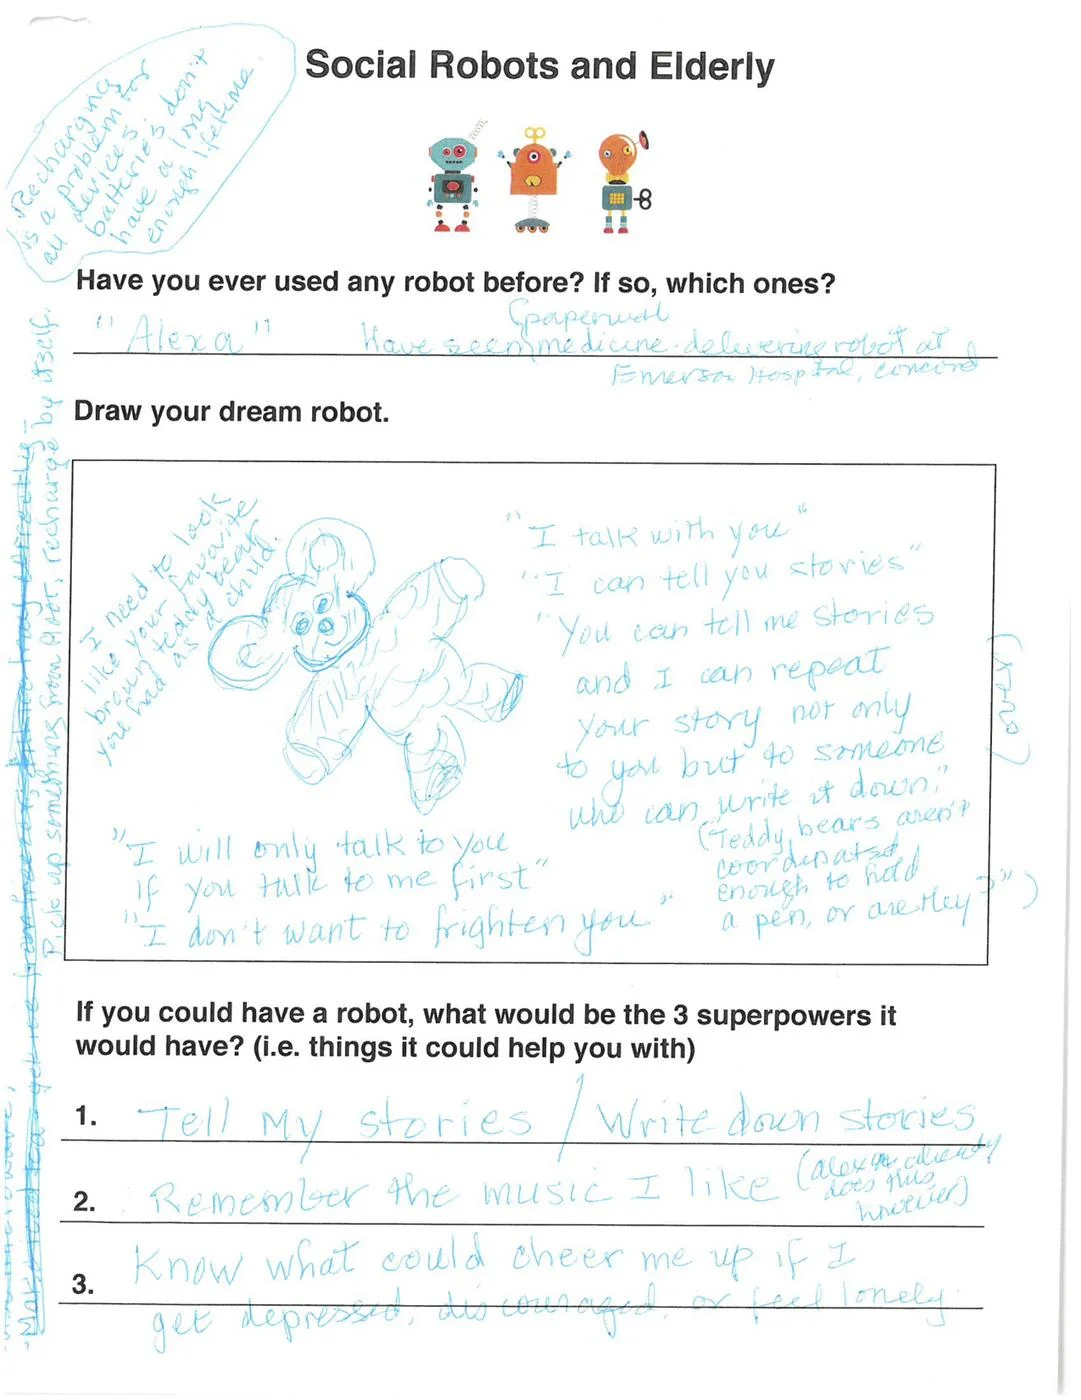 Social Robots and Elderly
Recharging
is a problem for
all devices.
batteries don't
have a long
enough lifetime.
Have you ever used any robot before? If so, which ones?
"Alexa" Have seen medicine-delivering robot at
Emerson Hospital, Concord
Draw your dream robot.
I need to look
like your favorite
brown teddy bear
you had as a child.
"I talk with you"
"I can tell you stories"
"You can tell me stories
and I can repeat
your story not only
to you but to someone
who can write it down,"
("Teddy bears aren't
coordinated
enough to hold
a pen, or are they?")
"I will only talk to you
if you talk to me first"
"I don't want to frighten you"
(over)
Pick up something from floor, recharge by itself.
If you could have a robot, what would be the 3 superpowers it
would have? (i.e. things it could help you with)
1. Tell My stories / Write down stories
2. Remember the music I like (alexa already
does this
however)
3. Know what could cheer me up if I
get depressed, discouraged, or feel lonely.